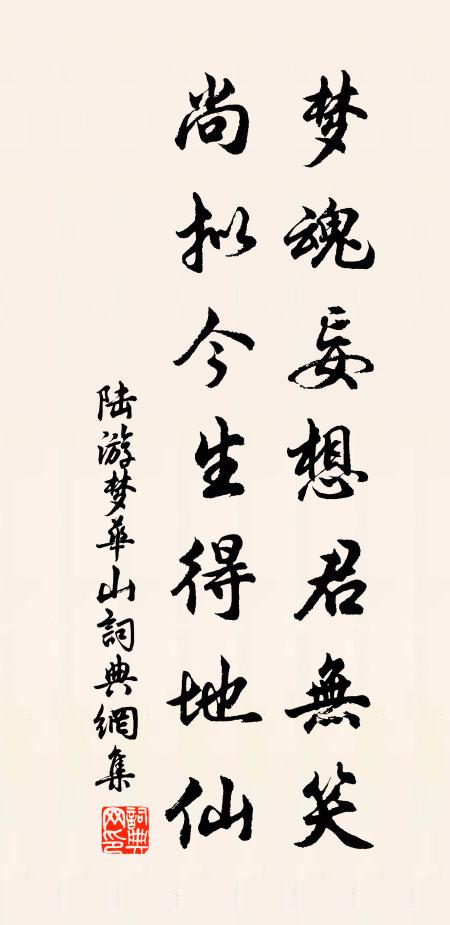 梦魂妄想君無笑
尚拟今生得地仙
陆游梦华山詞典網集
詞典網印